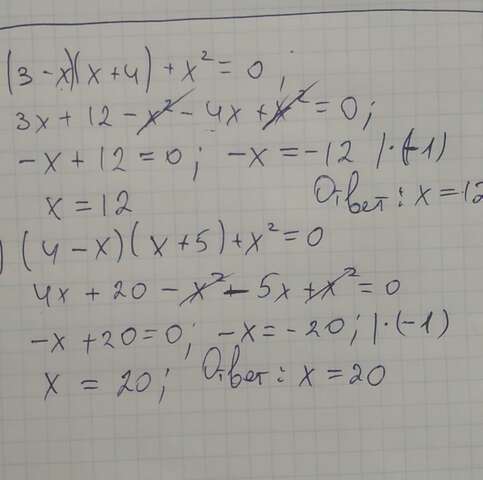 (3-x)(x+4)+x²=0;
3x+12-x²-4x+x²=0;
-x+12=0; -x=-12 |·(-1)
x=12 Ответ: x=12
) (4-x)(x+5)+x²=0
4x+20-x²-5x+x²=0
-x+20=0; -x=-20; |·(-1)
x = 20; Ответ: x=20